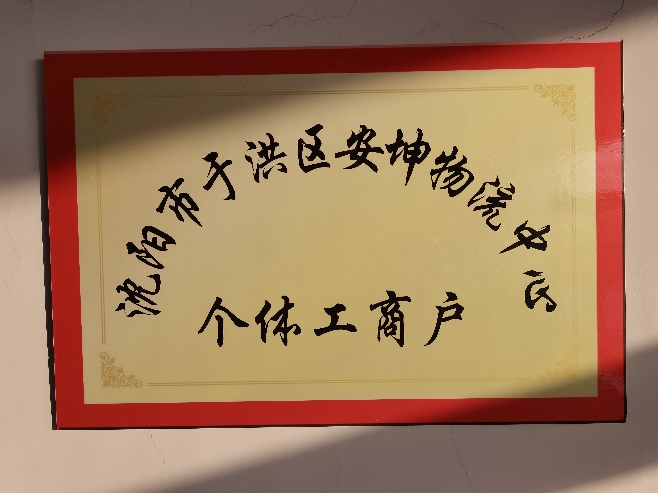 沈阳市于洪区安坤物流中心
个体工商户